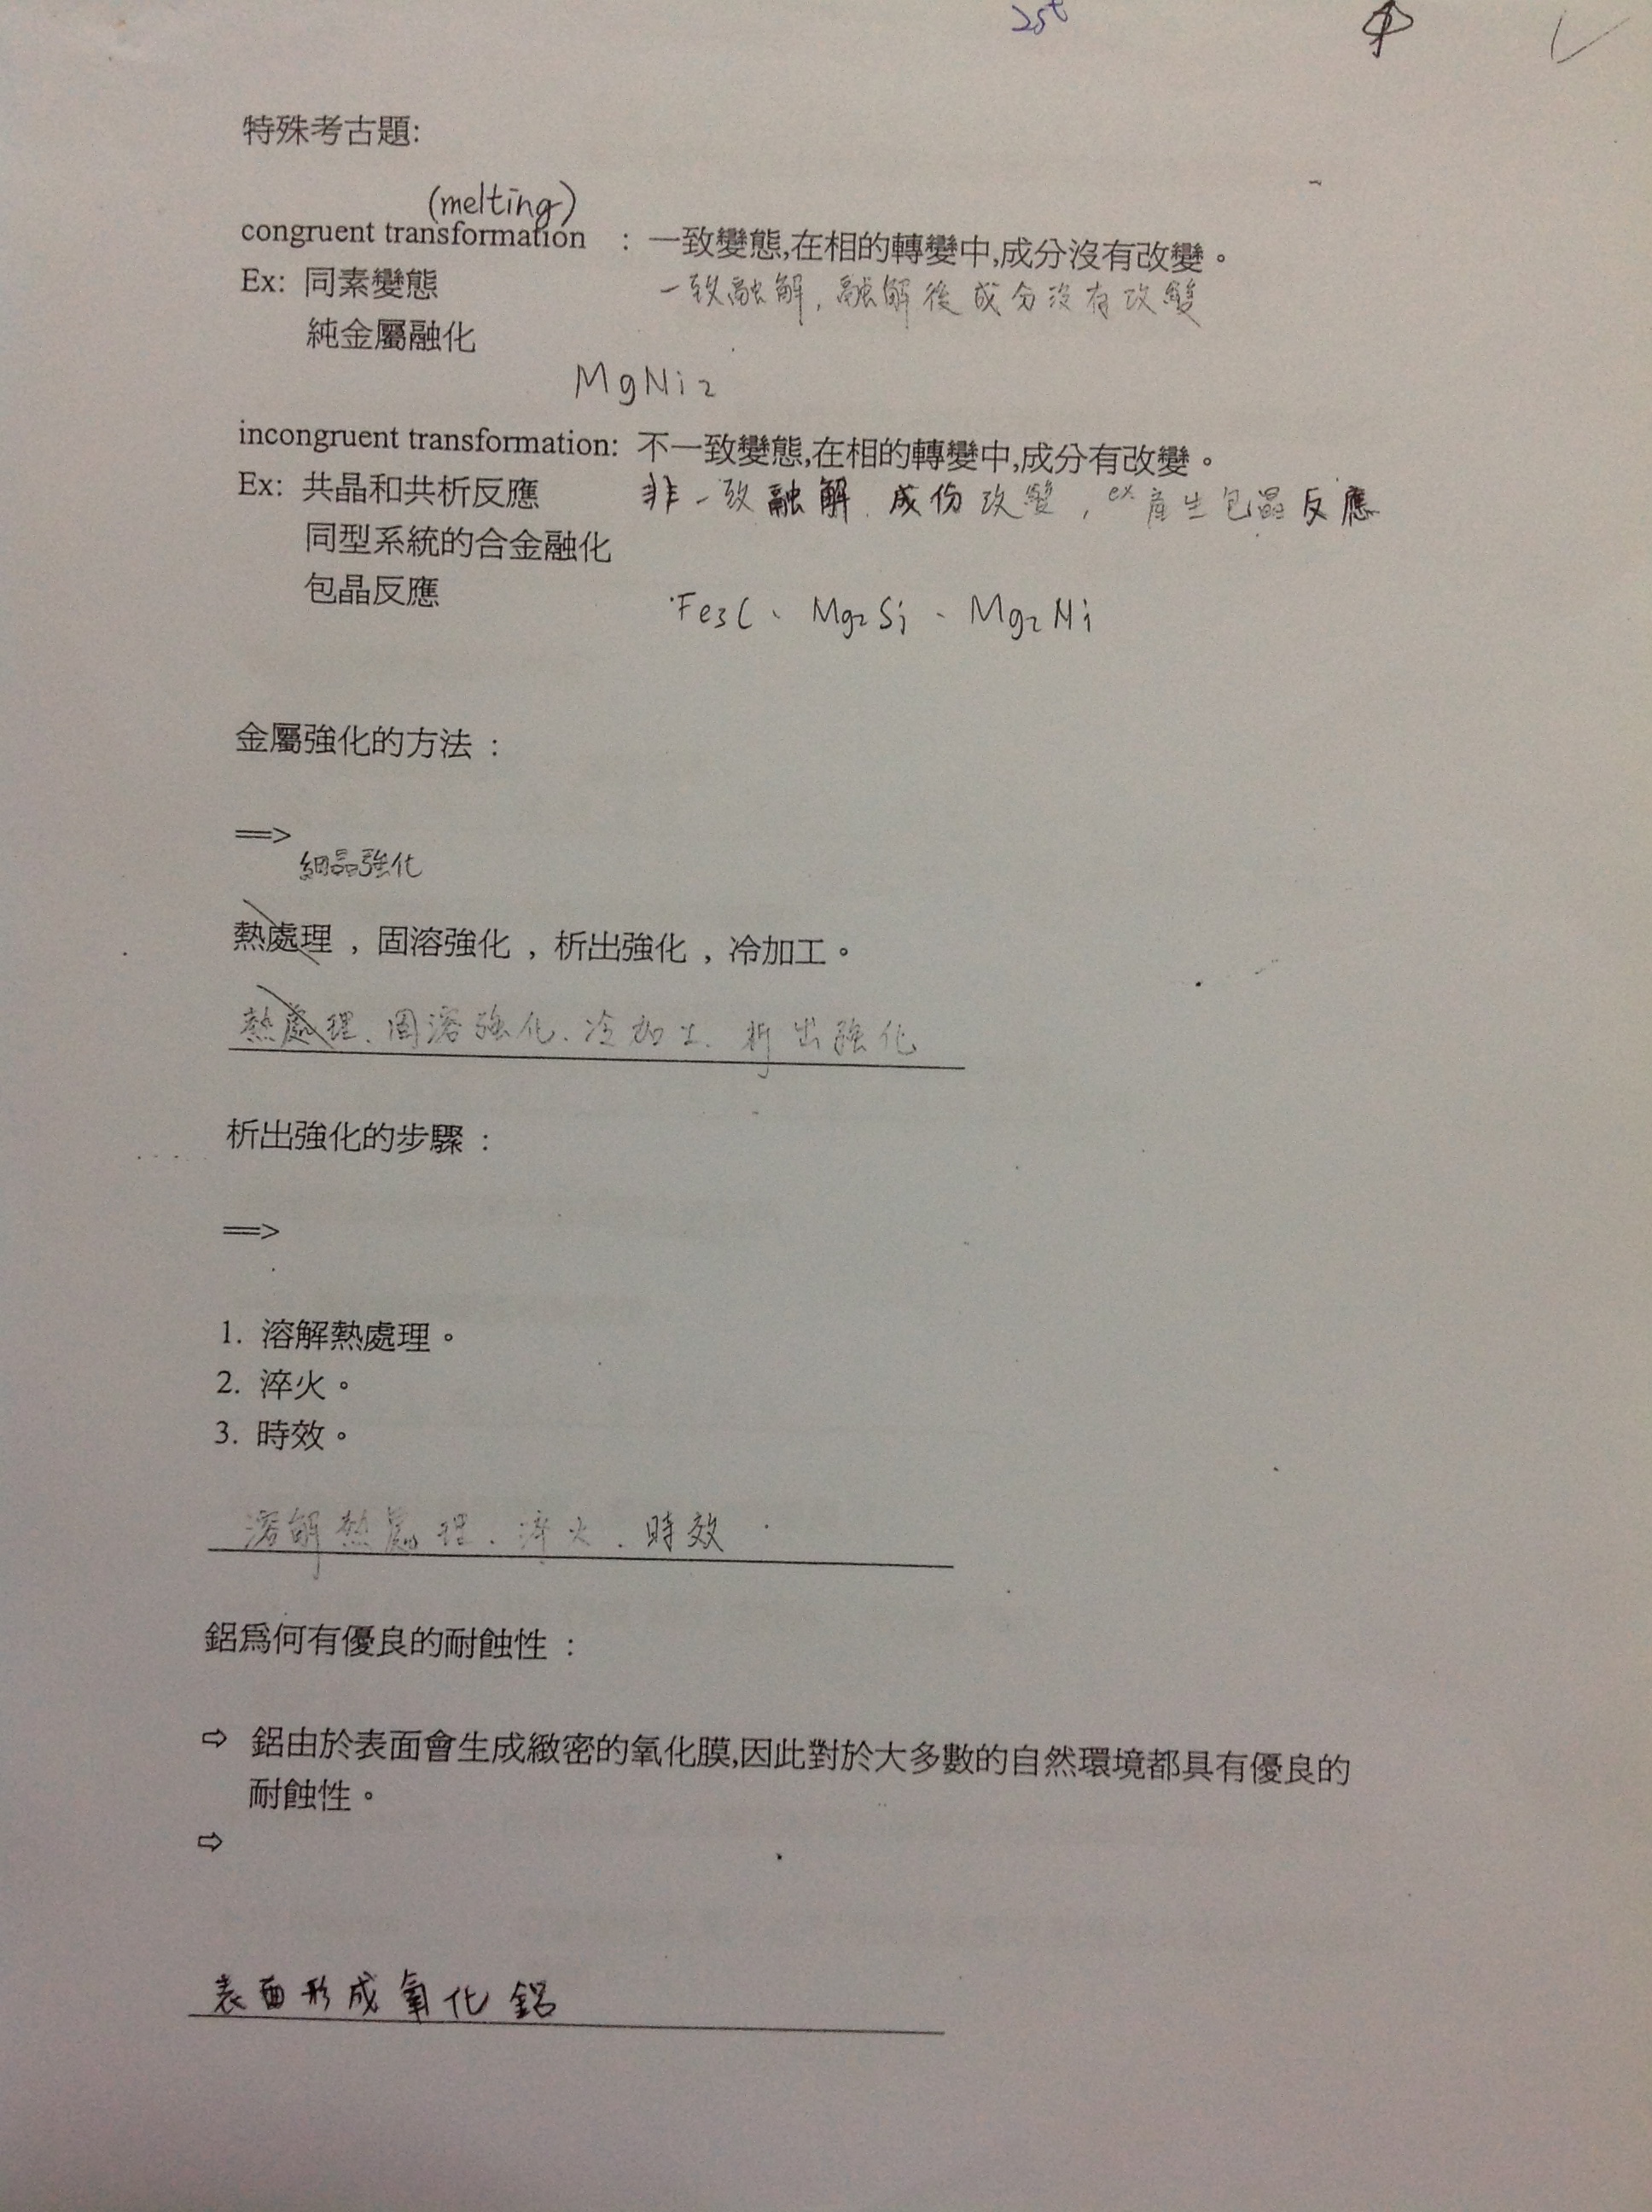 特殊考古題:
(melting)
congruent transformation : 一致變態,在相的轉變中,成分沒有改變。
Ex: 同素變態 一致融解, 融解後成分沒有改變
純金屬融化
MgNi2
incongruent transformation: 不一致變態,在相的轉變中,成分有改變。
Ex: 共晶和共析反應 非一致融解 成份改變, ex 產生包晶反應
同型系統的合金融化
包晶反應 Fe3C、Mg2Si、Mg2Ni
金屬強化的方法:
==>
細晶強化
熱處理,固溶強化,析出強化,冷加工。
熱處理、固溶強化、冷加工、析出強化
析出強化的步驟:
==>
1. 溶解熱處理。
2. 淬火。
3. 時效。
溶解熱處理、淬火、時效
鋁爲何有優良的耐蝕性:
⇨ 鋁由於表面會生成緻密的氧化膜,因此對於大多數的自然環境都具有優良的
耐蝕性。
⇨
表面形成氧化鋁